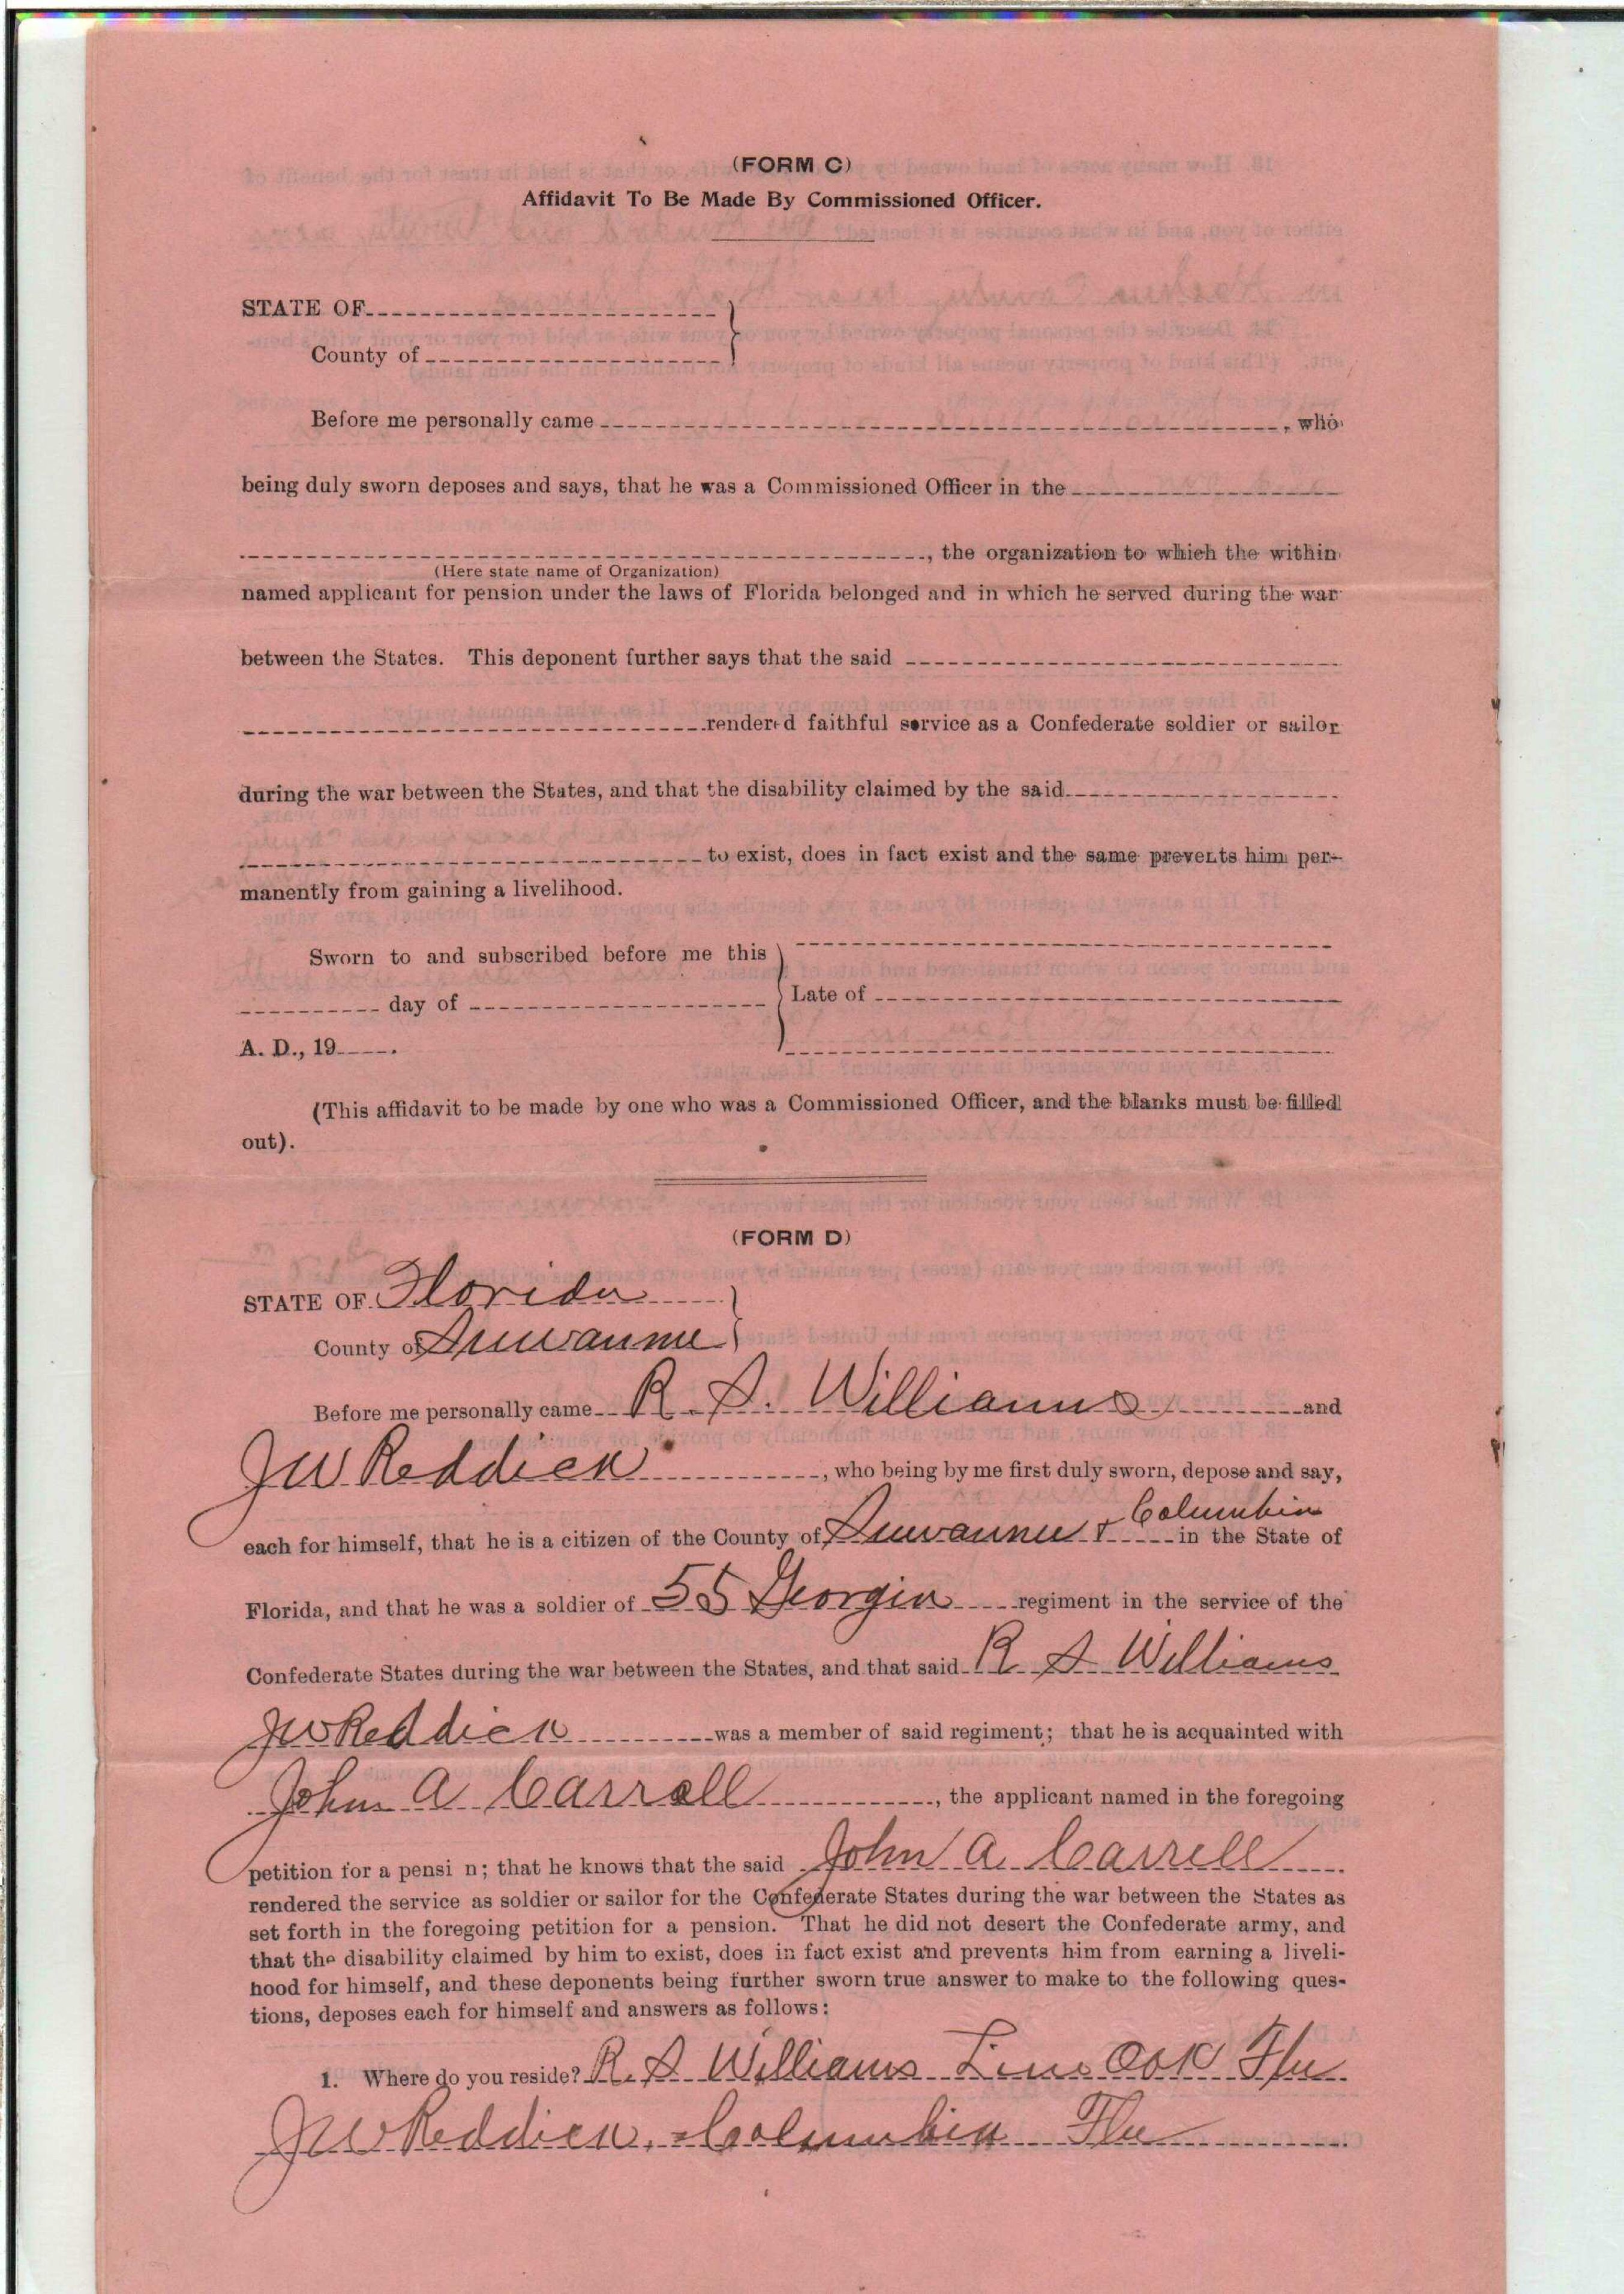 (FORM C)
Affidavit To Be Made By Commissioned Officer.
STATE OF
County of
Before me personally came , who
being duly sworn deposes and says, that he was a Commissioned Officer in the
, the organization to which the within
(Here state name of Organization)
named applicant for pension under the laws of Florida belonged and in which he served during the war
between the States. This deponent further says that the said
rendered faithful service as a Confederate soldier or sailor
during the war between the States, and that the disability claimed by the said
to exist, does in fact exist and the same prevents him per-
manently from gaining a livelihood.
Sworn to and subscribed before me this
day of Late of
A. D., 19 .
(This affidavit to be made by one who was a Commissioned Officer, and the blanks must be filled
out).
(FORM D)
STATE OF Florida
County of Suwannee
Before me personally came R. S. Williams and
JW Reddick , who being by me first duly sworn, depose and say,
each for himself, that he is a citizen of the County of Suwannee & Columbia in the State of
Florida, and that he was a soldier of 55 Georgia regiment in the service of the
Confederate States during the war between the States, and that said R. S. Williams
JW Reddick was a member of said regiment; that he is acquainted with
John A Carrell , the applicant named in the foregoing
petition for a pensi n; that he knows that the said John A. Carrell
rendered the service as soldier or sailor for the Confederate States during the war between the States as
set forth in the foregoing petition for a pension. That he did not desert the Confederate army, and
that the disability claimed by him to exist, does in fact exist and prevents him from earning a liveli-
hood for himself, and these deponents being further sworn true answer to make to the following ques-
tions, deposes each for himself and answers as follows:
1. Where do you reside? R. S. Williams Live Oak Fla.
JW Reddick, Columbia Fla